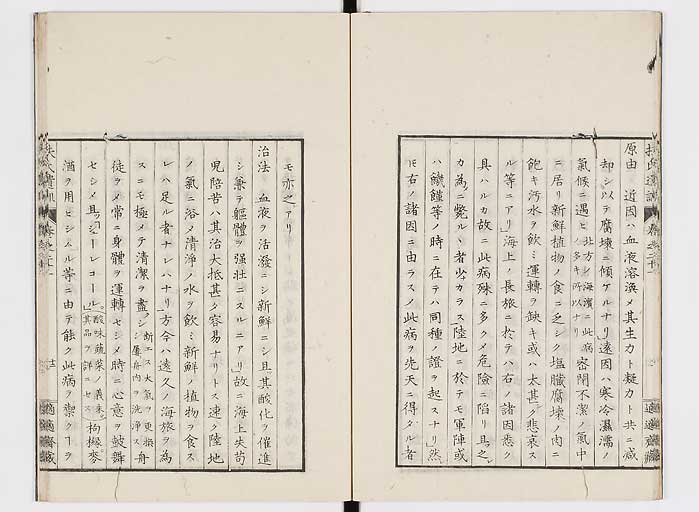 扶氏遺訓 巻之二十
原由 近因ハ血液溶渙メ其生力ト凝力ト共ニ減
却シ以テ腐壊ニ傾ケルナリ遠因ハ寒冷濕濡ノ
氣候ニ遇ヒ北方ノ海濱ニ此病ノ多キ所以ナリ密閉不潔ノ氣中
ニ居リ新鮮植物ノ食ニ乏シク塩臓腐壊ノ肉ニ
飽キ汚水ヲ飲ミ運轉ヲ缺キ或ハ太甚ク悲哀ス
ル等ニアリ海上ノ長旅ニ於テハ右ノ諸因悉ク
具ハルカ故ニ此病殊ニ多クメ危險ニ陷リ且之
カ為ニ斃ルヽ者少カラス陸地ニ於テモ軍陣或
ハ饑饉等ノ時ニ在テハ同種ノ證ヲ起スナリ然
𪜈右ノ諸因ニ由ラスメ此病ヲ先天ニ得タル者
モ亦之アリ
治法 血液ヲ活潑ニシ新鮮ニシ且其酸化ヲ催進
シ兼テ軀體ヲ强壮ニスルニアリ故ニ海上失苟
児陪苦ハ其治大抵甚タ容易ナリトス速ク陸地
ノ氣ニ浴メ清淨ノ水ヲ飲ミ新鮮ノ植物ヲ食ス
レハ足ル者ナレハナリ方今ハ遠久ノ海旅ヲ為
スニモ極メテ清潔ヲ盡シ断エス大氣ヲ更換シ屢船内ヲ洗浄ス舟
徒ヲメ常ニ身體ヲ運轉セシメ時ニ心意ヲ鼓舞
セシメ且シーレコール酸味蔬菜ノ義未其品ヲ詳ニセス枸櫞麥
酒ヲ用ヒシムル等ニ由テ能ク此病ヲ禦クヿヲ
適適齋藏